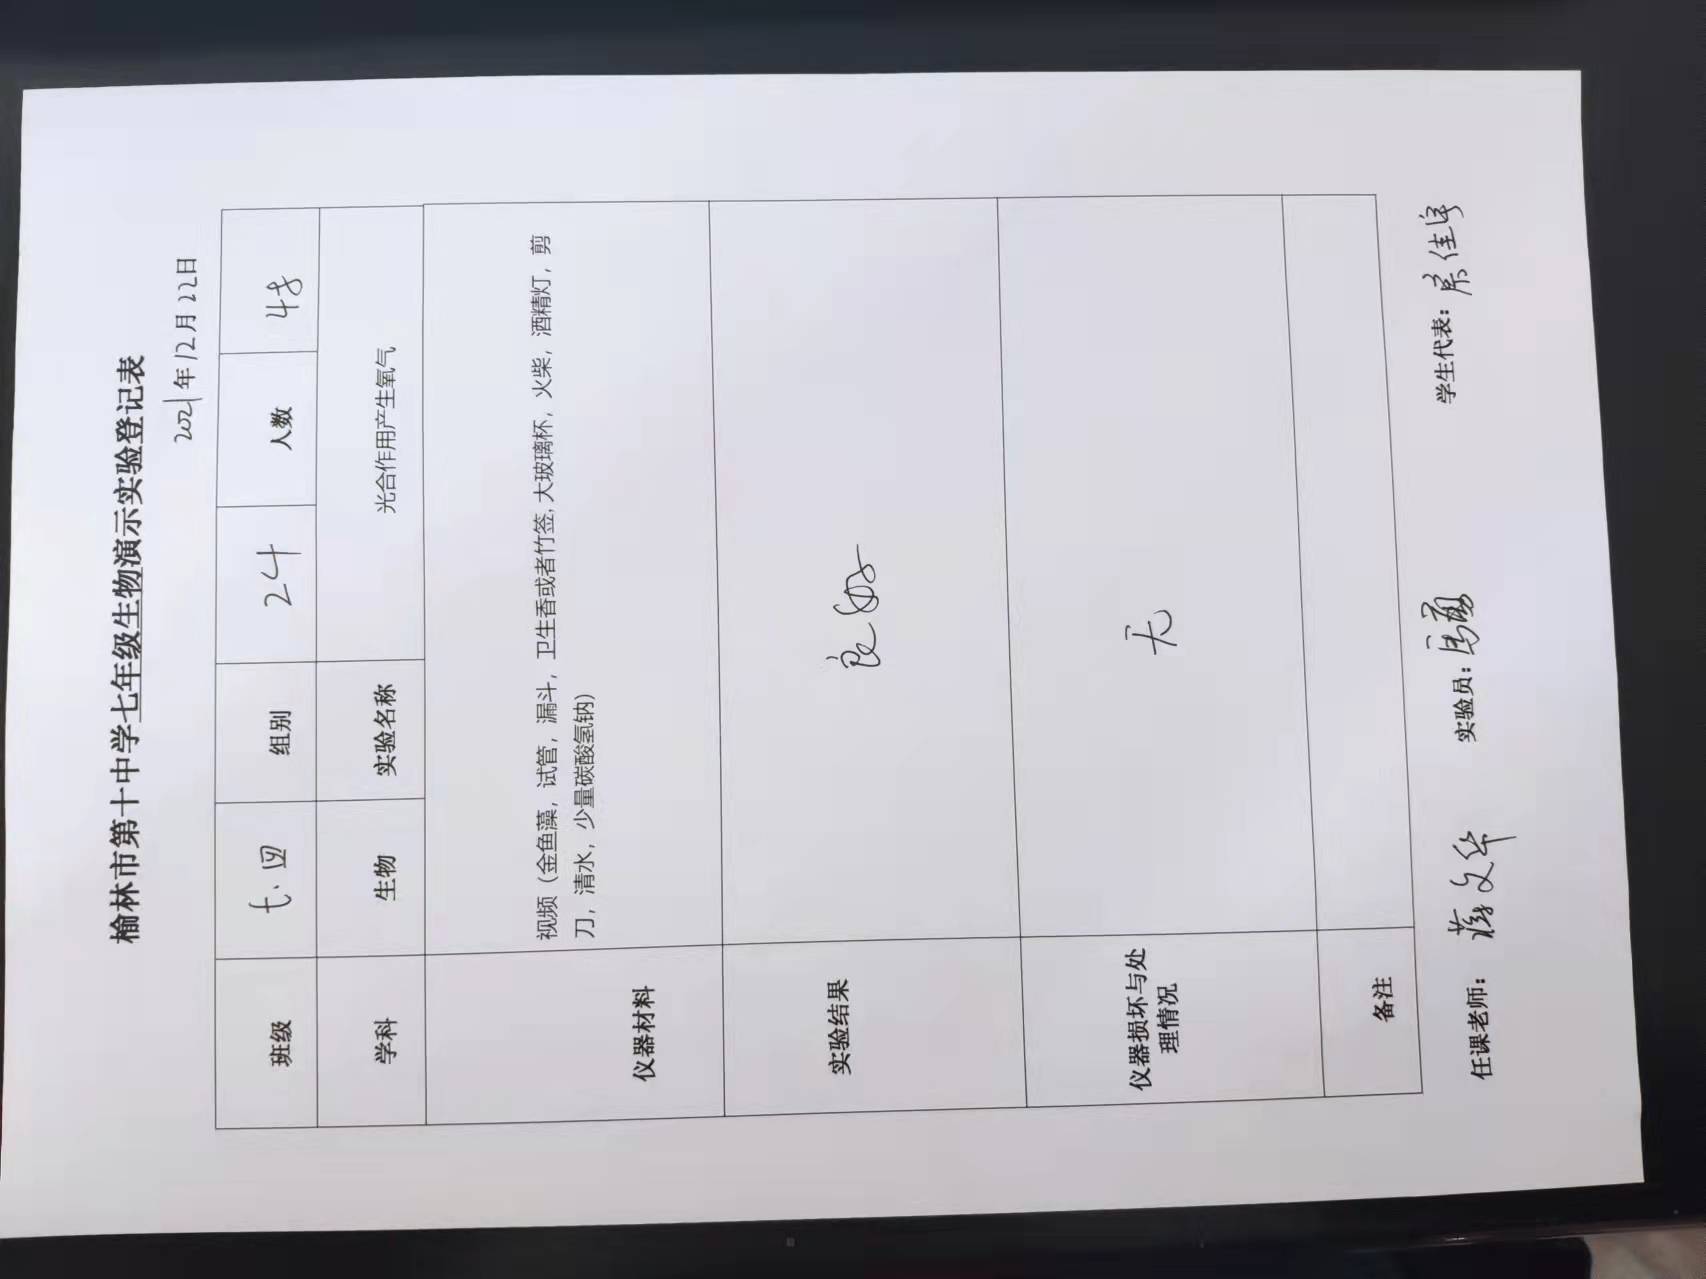 榆林市第十中学七年级生物演示实验登记表
2021年12月22日
班级 七.四 组别 24 人数 48
学科 生物 实验名称 光合作用产生氧气
仪器材料
视频（金鱼藻，试管，漏斗，卫生香或者竹签,大玻璃杯，火柴，酒精灯，剪
刀，清水，少量碳酸氢钠）
实验结果 良好
仪器损坏与处
理情况
无
备注
任课老师： 蒋文华 实验员： 学生代表：